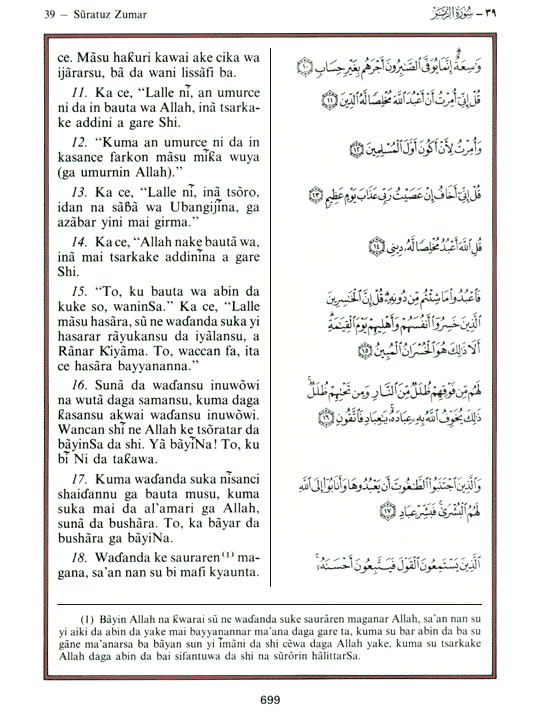 39 — Sūratuz Zumar
٣٩ — سُورَةُ الزُّمَرِ
ce. Māsu haƙuri kawai ake cika wa
ijārarsu, bā da wani lissāfi ba.
11. Ka ce, “Lalle nī, an umurce
ni da in bauta wa Allah, inā tsarka-
ke addini a gare Shi.
12. “Kuma an umurce ni da in
kasance farkon māsu mīƙa wuya
(ga umurnin Allah).”
13. Ka ce, “Lalle nī, inā tsōro,
idan na sāɓā wa Ubangijīna, ga
azābar yini mai girma.”
14. Ka ce, “Allah nake bautā wa,
inā mai tsarkake addinīna a gare
Shi.
15. “To, ku bauta wa abin da
kuke so, waninSa.” Ka ce, “Lalle
māsu hasāra, sū ne waɗanda suka yi
hasarar rāyukansu da iyālansu, a
Rānar Ƙiyāma. To, waccan fa, ita
ce hasāra bayyananna.”
16. Sunā da waɗansu inuwōwi
na wutā daga samansu, kuma daga
ƙasansu akwai waɗansu inuwōwi.
Wancan shī ne Allah ke tsōratar da
bāyinSa da shi. Yā bāyīNa! To, ku
bī Ni da taƙawa.
17. Kuma waɗanda suka nīsanci
shaiɗannu ga bauta musu, kuma
suka mai da al’amari ga Allah,
sunā da bushāra. To, ka bāyar da
bushāra ga bāyiNa.
18. Waɗanda ke sauraren (1) ma-
gana, sa’an nan su bi mafi kyaunta.
وَاسِعَةٌ إِنَّمَا يُوَفَّى الصَّابِرُونَ أَجْرَهُم بِغَيْرِ حِسَابٍ ١٠
قُلْ إِنِّي أُمِرْتُ أَنْ أَعْبُدَ اللَّهَ مُخْلِصًا لَّهُ الدِّينَ ١١
وَأُمِرْتُ لِأَنْ أَكُونَ أَوَّلَ الْمُسْلِمِينَ ١٢
قُلْ إِنِّي أَخَافُ إِنْ عَصَيْتُ رَبِّي عَذَابَ يَوْمٍ عَظِيمٍ ١٣
قُلِ اللَّهَ أَعْبُدُ مُخْلِصًا لَّهُ دِينِي ١٤
فَاعْبُدُوا مَا شِئْتُم مِّن دُونِهِ قُلْ إِنَّ الْخَاسِرِينَ
الَّذِينَ خَسِرُوا أَنفُسَهُمْ وَأَهْلِيهِمْ يَوْمَ الْقِيَامَةِ
أَلَا ذَٰلِكَ هُوَ الْخُسْرَانُ الْمُبِينُ ١٥
لَهُم مِّن فَوْقِهِمْ ظُلَلٌ مِّنَ النَّارِ وَمِن تَحْتِهِمْ ظُلَلٌ
ذَٰلِكَ يُخَوِّفُ اللَّهُ بِهِ عِبَادَهُ يَا عِبَادِ فَاتَّقُونِ ١٦
وَالَّذِينَ اجْتَنَبُوا الطَّاغُوتَ أَن يَعْبُدُوهَا وَأَنَابُوا إِلَى اللَّهِ
لَهُمُ الْبُشْرَىٰ فَبَشِّرْ عِبَادِ ١٧
الَّذِينَ يَسْتَمِعُونَ الْقَوْلَ فَيَتَّبِعُونَ أَحْسَنَهُ
(1) Bāyin Allah na ƙwarai sū ne waɗanda suke saurāren maganar Allah, sa’an nan su
yi aiki da abin da yake mai bayyanannar ma’ana daga gare ta, kuma su bar abin da ba su
gāne ma’anarsa ba bāyan sun yi īmāni da shi cēwa daga Allah yake, kuma su tsarkake
Allah daga abin da bai sifantuwa da shi na sūrōrin hālittarSa.
699